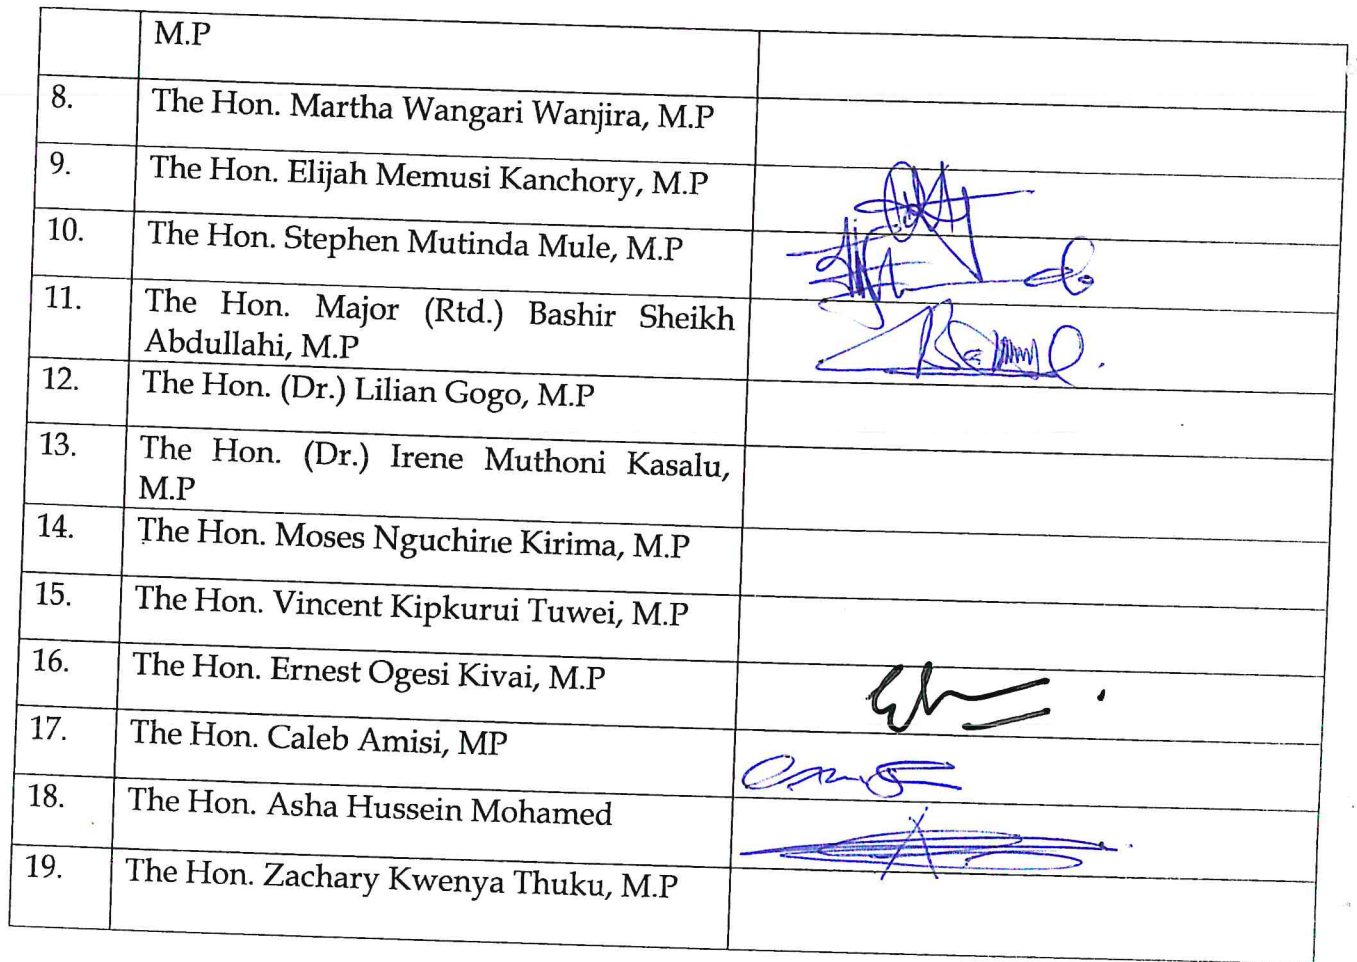 M.P
8. The Hon. Martha Wangari Wanjira, M.P
9. The Hon. Elijah Memusi Kanchory, M.P
10. The Hon. Stephen Mutinda Mule, M.P
11. The Hon. Major (Rtd.) Bashir Sheikh
Abdullahi, M.P
12. The Hon. (Dr.) Lilian Gogo, M.P
13. The Hon. (Dr.) Irene Muthoni Kasalu,
M.P
14. The Hon. Moses Nguchine Kirima, M.P
15. The Hon. Vincent Kipkurui Tuwei, M.P
16. The Hon. Ernest Ogesi Kivai, M.P
17. The Hon. Caleb Amisi, MP
18. The Hon. Asha Hussein Mohamed
19. The Hon. Zachary Kwenya Thuku, M.P